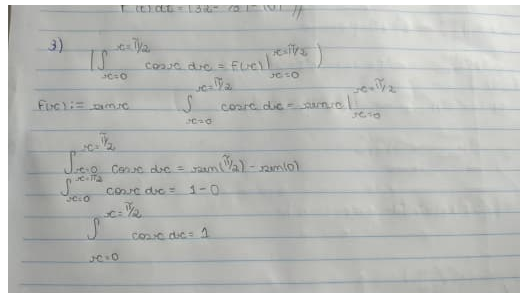 3)
( ∫_{x=0}^{x=π/2} cosx dx = F(x) |_{x=0}^{x=π/2} )
F(x):= senx ∫_{x=0}^{x=π/2} cosx dx = senx |_{x=0}^{x=π/2}
∫_{x=0}^{x=π/2} cosx dx = sen(π/2) - sen(0)
∫_{x=0}^{x=π/2} cosx dx = 1-0
∫_{x=0}^{x=π/2} cosx dx = 1